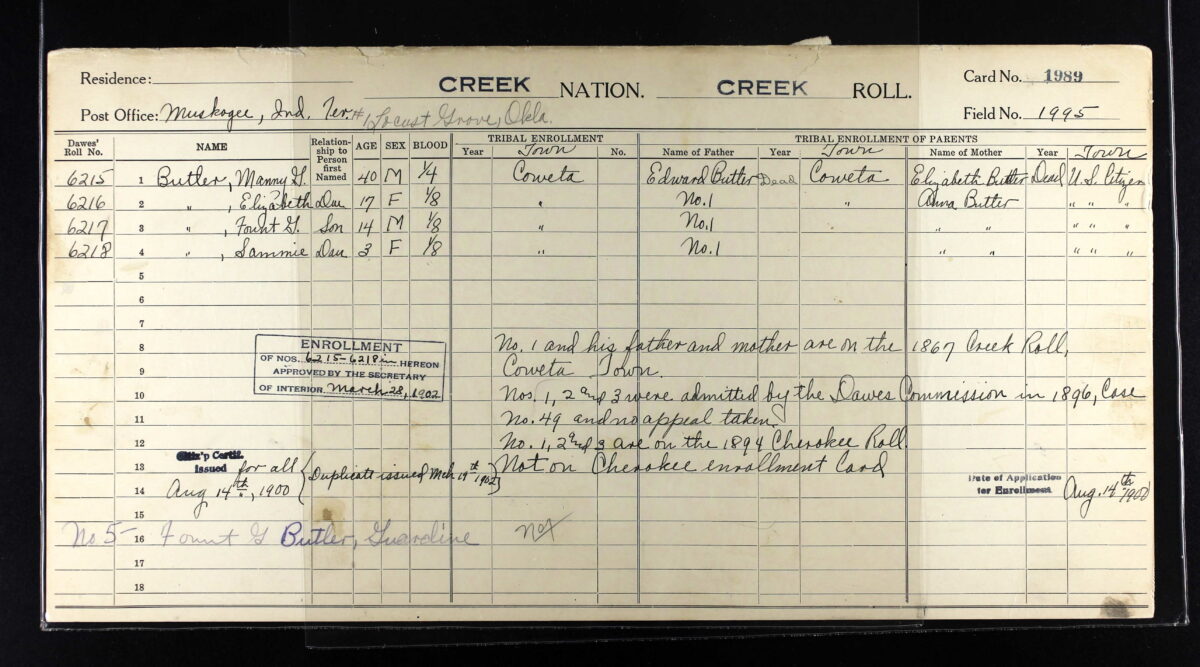 Residence: CREEK NATION. CREEK ROLL. Card No. 1989
Post Office: Muskogee, Ind. Ter. #1 Locust Grove, Okla. Field No. 1995
Dawes' Roll No. NAME Relationship to Person first Named AGE SEX BLOOD TRIBAL ENROLLMENT TRIBAL ENROLLMENT OF PARENTS
Year Town No. Name of Father Year Town Name of Mother Year Town
6215 1 Butler, Manny G. 40 M 1/4 Coweta Edward Butler Dead Coweta Elizabeth Butler Dead U.S. Citizen
6216 2 " , Elizabeth Dau 17 F 1/8 " No.1 " Anna Butler " " "
6217 3 " , Fount G. Son 14 M 1/8 " No.1 " " " " "
6218 4 " , Sammie Dau 3 F 1/8 " No.1 " " " " "
5
6
7
8 No. 1 and his father and mother are on the 1867 Creek Roll,
9 Coweta Town.
10 Nos. 1, 2 and 3 were admitted by the Dawes Commission in 1896, Case
11 No. 49 and no appeal taken.
12 No. 1, 2 and 3 are on the 1894 Cherokee Roll.
13 Not on Cherokee enrollment Card
14
15
16 No 5- Fount G Butler, Guardine not
17
18
ENROLLMENT
OF NOS. 6215-6218 in HEREON
APPROVED BY THE SECRETARY
OF INTERIOR. March 28, 1902
Citiz'p Certif.
Issued for all
Aug 14th, 1900
Duplicate issued Mch 19th 1902
Date of Application
for Enrollment Aug. 14th 1900